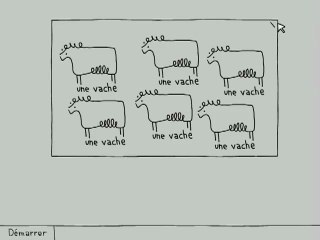 une vache
une vache
une vache
une vache
une vache
une vache
Démarrer